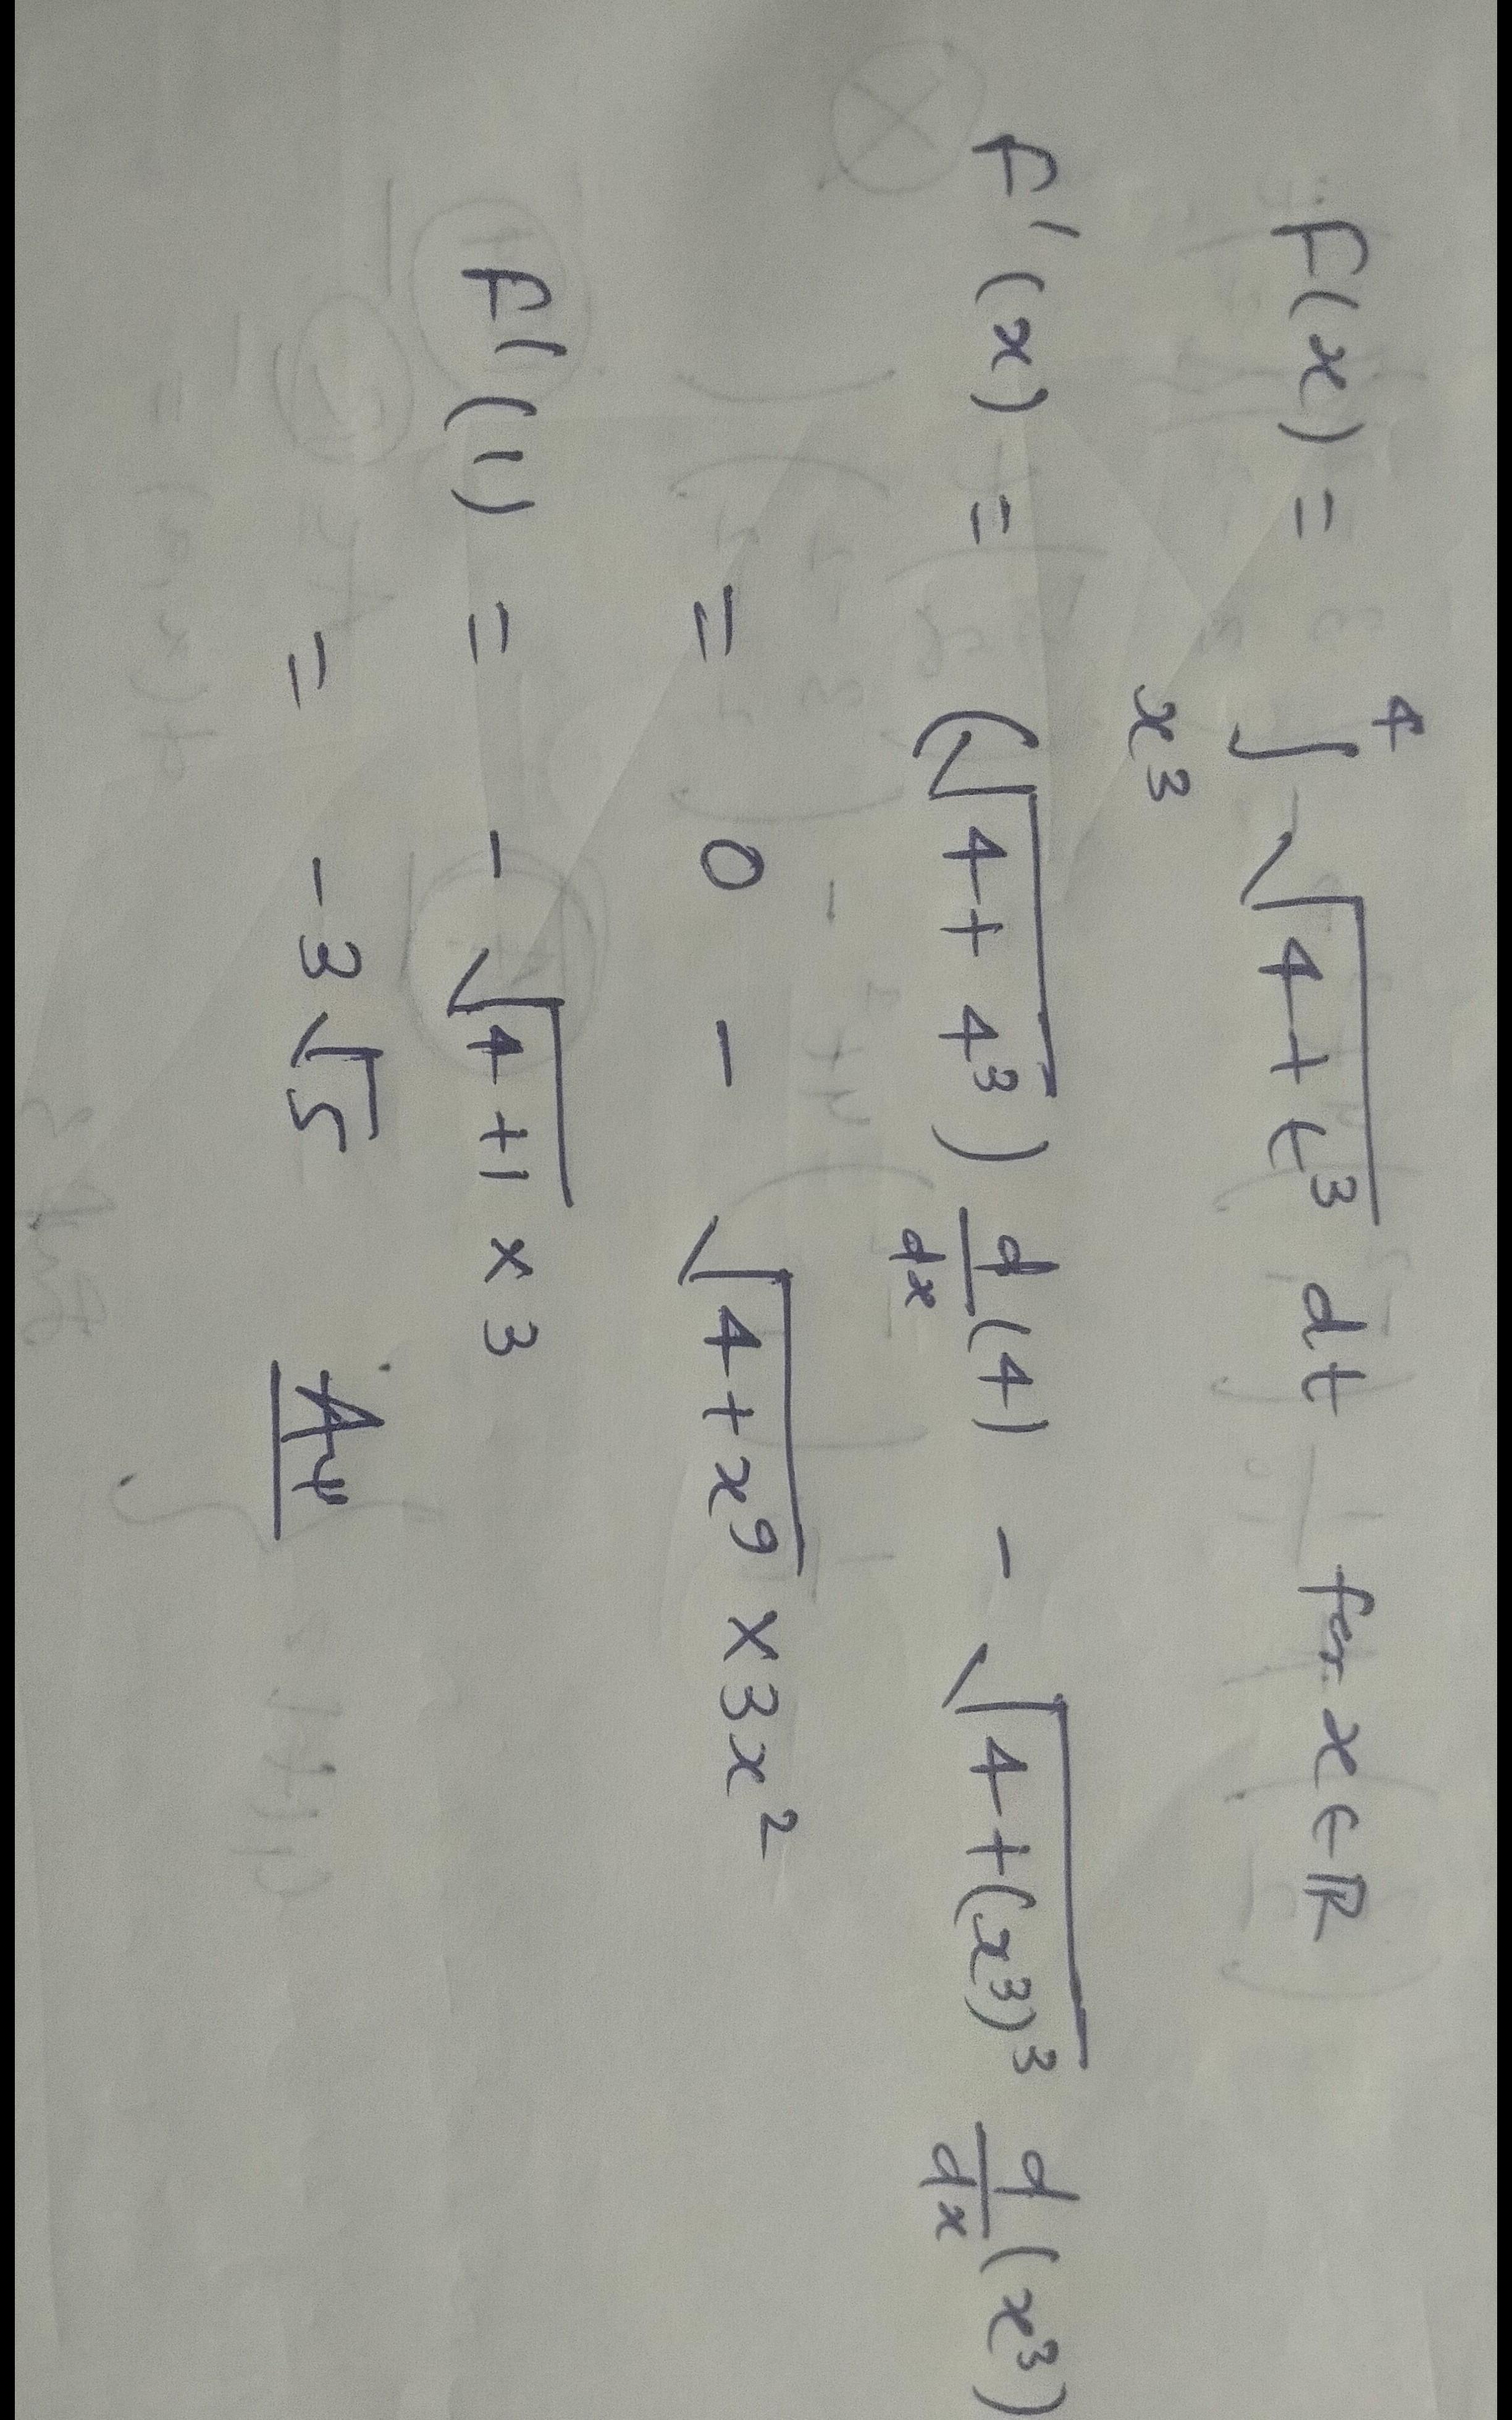 F(x) = ∫_{x³}^{4} √(4 + t³) dt for x ∈ ℝ
F'(x) = (√(4 + 4³)) d/dx (4) - √(4 + (x³)³) d/dx (x³)
= 0 - √(4 + x⁹) × 3x²
F'(1) = - √(4 + 1) × 3
= - 3√5